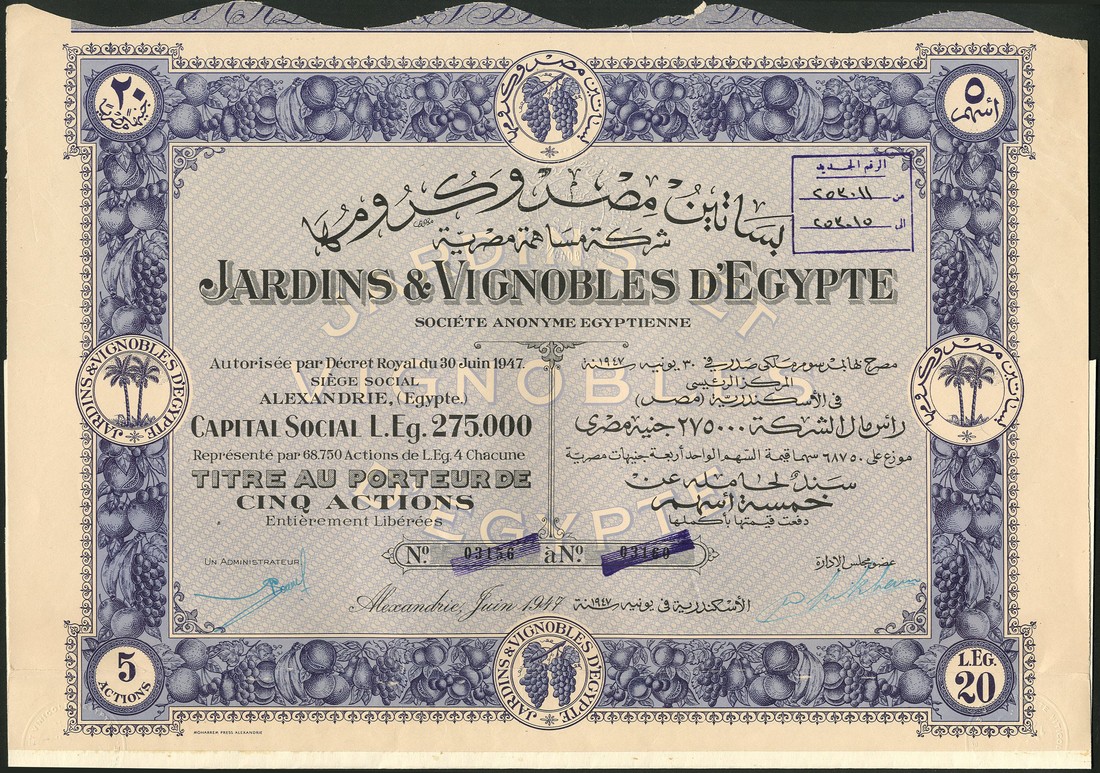 ٢٠
جنيه مصرى
بساتين مصر وكرومها
٥
أسهم
الرقم الجديد
من ٢٥٣٠١١
الى ٢٥٣٠١٥
بساتين مصر وكرومها
شركة مساهمة مصرية
JARDINS & VIGNOBLES D'EGYPTE
SOCIÉTE ANONYME EGYPTIENNE
JARDINS ET
VIGNOBLES
D'EGYPTE
Autorisée par Décret Royal du 30 Juin 1947.
SIÈGE SOCIAL
ALEXANDRIE, (Egypte.)
CAPITAL SOCIAL L.EG. 275.000
Représenté par 68.750 Actions de L.Eg. 4 Chacune
TITRE AU PORTEUR DE
CINQ ACTIONS
Entièrement Libérées
مصرح بها بمرسوم ملكى صدر فى ٣٠ يونيه سنة ١٩٤٧
المركز الرئيسى
فى الأسكندرية (مصر)
رأس مال الشركة ٢٧٥٠٠٠ جنيه مصرى
موزع على ٦٨٧٥٠ سهما قيمة السهم الواحد أربعة جنيهات مصرية
سند لحامله عن
خمسة أسهم
دفعت قيمتها بأكملها
JARDINS & VIGNOBLES D'EGYPTE
بساتين مصر وكرومها
Nº 03156 à Nº 03160
UN ADMINISTRATEUR
عضو مجلس الادارة
Alexandrie, Juin 1947
الأسكندرية فى يونيه سنة ١٩٤٧
5
ACTIONS
JARDINS & VIGNOBLES D'EGYPTE
L.EG.
20
MOHARREM PRESS ALEXANDRIE